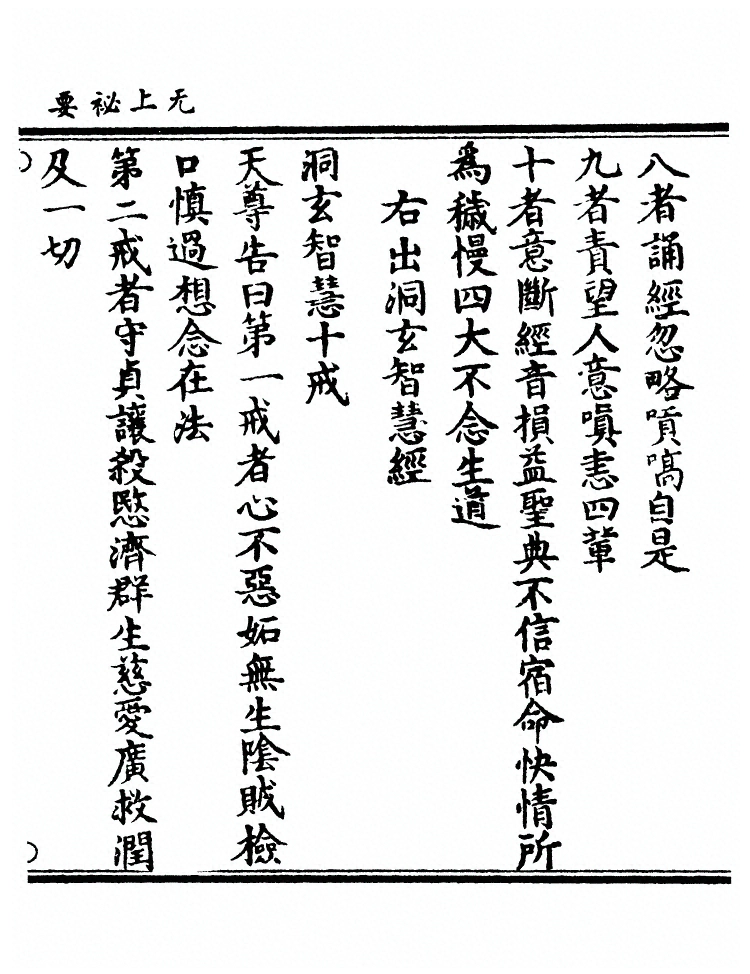 无上祕要
八者誦經忽略嘖嗃自是
九者責望人意嗔恚四輩
十者意斷經音損益聖典不信宿命快情所
為穢慢四大不念生道
右出洞玄智慧經
洞玄智慧十戒
天尊告曰第一戒者心不惡妬無生陰賊檢
口慎過想念在法
第二戒者守貞讓殺愍濟群生慈愛廣救潤
及一切